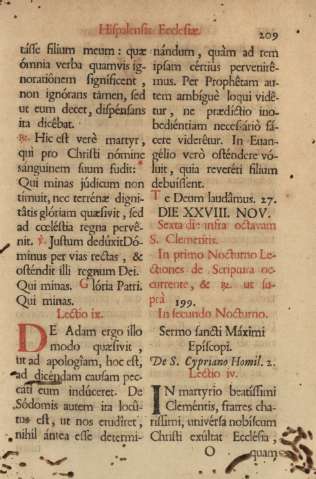 Hispalensis Ecclesiæ.
209
tásse filium meum: quæ
ómnia verba quamvis ig-
norationêm significent,
non ignórans támen, sed
ut eum decet, dispénsans
ita dicêbat.
℟. Hic est verè martyr,
qui pro Christi nómine
sanguinem suum fudit: *
Qui minas júdicum non
timuit, nec terrénæ digni-
tâtis glóriam quæsivit, sed
ad cœléstia regna pervê-
nit. ℣. Justum dedúxit Dó-
minus per vias rectas, &
osténdit illi regnum Dei.
Qui minas. Glória Patri.
Qui minas.
Lectio ix.
DE Adam ergo illo
modo quæsivit,
ut ad apologiam, hoc est,
ad dicendam causam pec-
cáti eum indúceret. De
Sódomis autem ita locû-
tus est, ut nos erudîret,
nihil ántea esse determi-
nándum, quàm ad rem
ipsam cértius pervenirê-
mus. Per Prophêtam au-
tem ambíguè loqui vidê-
tur, ne prædíctio ino-
bediéntiam necessáriò fá-
cere viderêtur. In Evan-
gélio verò osténdere vó-
luit, quia reveréri filium
debuíssent.
Te Deum laudâmus. 27.
DIE XXVIII. NOV.
Sexta die infra octavam
S. Clementis.
In primo Nocturno Le-
ctiones de Scriptura oc-
currente, & ℟. ut su-
prà 199.
In secundo Nocturno.
Sermo sancti Máximi
Epíscopi.
De S. Cypriano Homil. 2.
Lectio iv.
IN martyrio beatíssimi
Cleméntis, fratres cha-
ríssimi, univérsa nobíscum
Christi exúltat Ecclésia,
O
quam